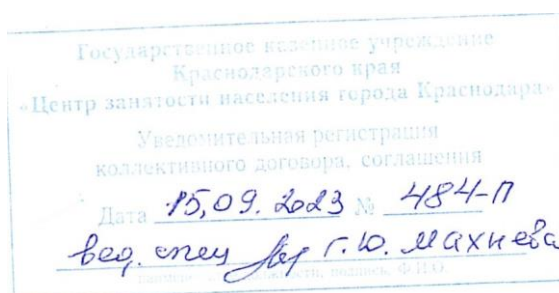 Государственное казенное учреждение
Краснодарского края
«Центр занятости населения города Краснодара»
Уведомительная регистрация
коллективного договора, соглашения
Дата 15.09.2023 № 484-П
вед. спец Г.Ю. Махнева
подпись, Ф.И.О.